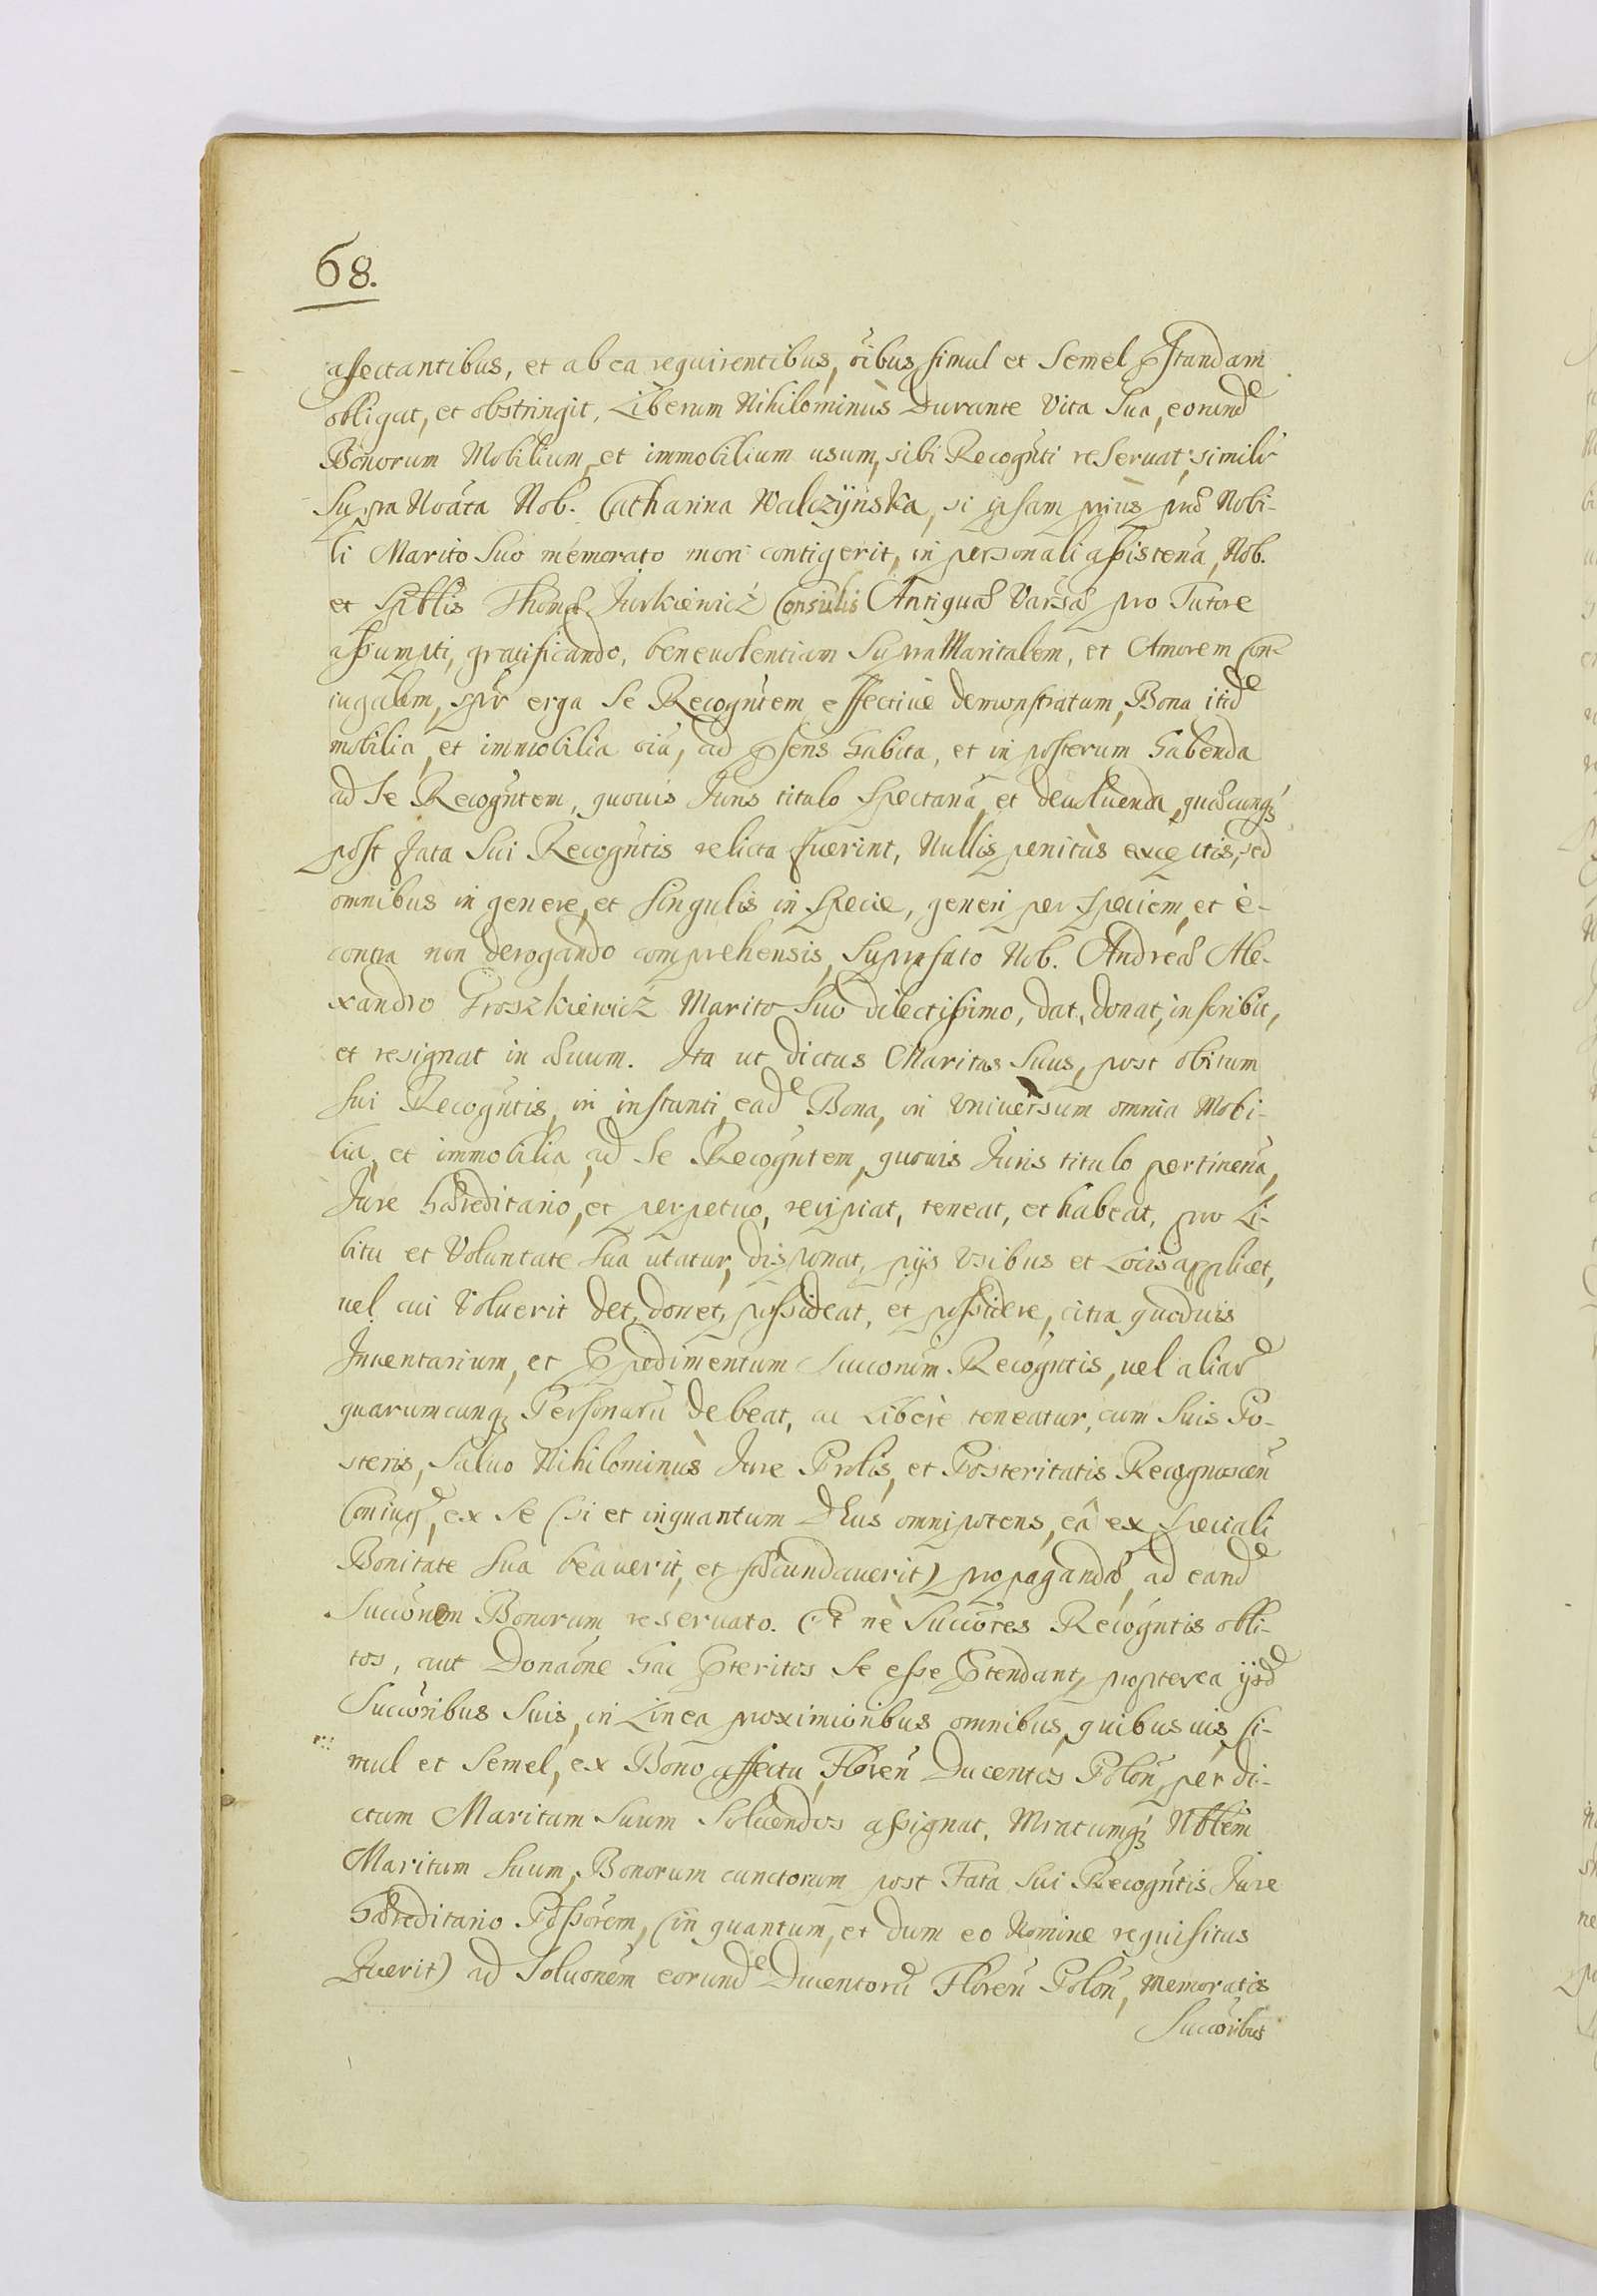 68.
affectantibus, et ab ea requirentibus, oîbus simul et Semel pstandam
obligat, et obstringit, Liberum Nihilominùs Durante Vita Sua, eorund͠e
Bonorum Mobilium, et immobilium usum, sibi Recogñti reseruat; similr̃
Supra Noâta Nob. Catharina Walczÿnska, si ipsam priùs præ Nobi-
li Marito Suo memorato mori contigerit, in personali aßistena, Nob.
et Spttlis Thomæ Jurkiewicz Consulis Antiquæ Varsaæ pro Tutore
aßumpti, gratificando, beneuolentiam SupraMaritalem, et Amorem Con-
iugalem, spr̃ erga Se Recogñtem effectiuè demonstratum, Bona itide
mobilia, et immobilia oîa, ad psens habita, et in posterum habenda
ad Se Recogñtem, quouis Juris titulo Spectañа, et deuoluenda, quæcunq;
post fata Sui Recogñtis relicta fuerint, Nullis penitùs exceptis, sed
omnibus in genere, et singulis in Specie, generi per speciem, et è-
contra non derogando comprehensis, Suprafato Nob. Andreæ Ale-
xandro Groszkiewicz Marito Suo dilectißimo, dat, donat, inscribit,
et resignat in æuum. Ita ut dictus Maritus Suus, post obitum
sui Recogñtis, in instanti, eade Bona, in Vniuersum omnia Mobi-
lia, et immobilia, ad Se Recogñtem, quouis Juris titulo pertineña,
Jure hæreditario, et perpetuo, recipiat, teneat, et habeat, pro Li-
bitu et Voluntate Sua utatur, disponat, pijs Vsibus et Locis applicet,
uel cui Voluerit det, donet, poßideat, et poßidere, citra quoduis
Inuentarium, et Ppedimentum Succorum Recogñtis, uel aliar̃
quarumcunq; Personaru͂ debeat, ac Liberè teneatur, cum Suis Po-
steris, Saluo Nihilominùs Jure Prolis, et Posteritatis Recognosceñ
Coniug, ex Se (si et inquantum DEus omnipotens, eâ ex Speciali
Bonitate Sua beauerit, et fæcundauerit) propagandæ, ad eande
Succonem Bonorum reseruato. Et nè Succores Recogñtis obli-
tos, aut Donaône hac Pteritos Se eße Ptendant, propterea ijsde
Succoribus Suis, in Linea proximioribus omnibus, quibusuis Si-
mul et Semel, ex Bono affectu, Floreñ Ducentos Poloñ, per di-
ctum Maritum Suum Soluendos aßignat, Mratumq; Nbtem
Maritum Suum, Bonorum cunctorum post Fata Sui Recogñtis Jure
Hæreditario Poßorem, (in quantum, et dum eo Nomine requisitus
Fuerit) ad Soluonem eorunde Ducentoru͂ Floreñ Poloñ, Memoratis
Succoribus